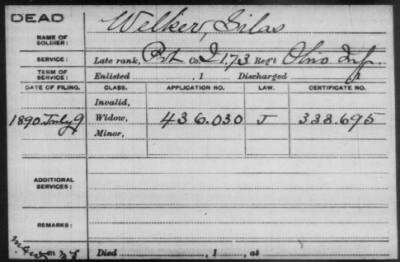 DEAD
NAME OF SOLDIER: Welker, Silas
SERVICE: Late rank, Pvt Co. I, 173 Reg't Ohio Inf.
TERM OF SERVICE: Enlisted , 1 Discharged , 1
DATE OF FILING. CLASS. APPLICATION NO. LAW. CERTIFICATE NO.
Invalid,
1890 July 9 Widow, 436.030 J 338.695
Minor,
ADDITIONAL SERVICES:
REMARKS:
Died , 1 , at